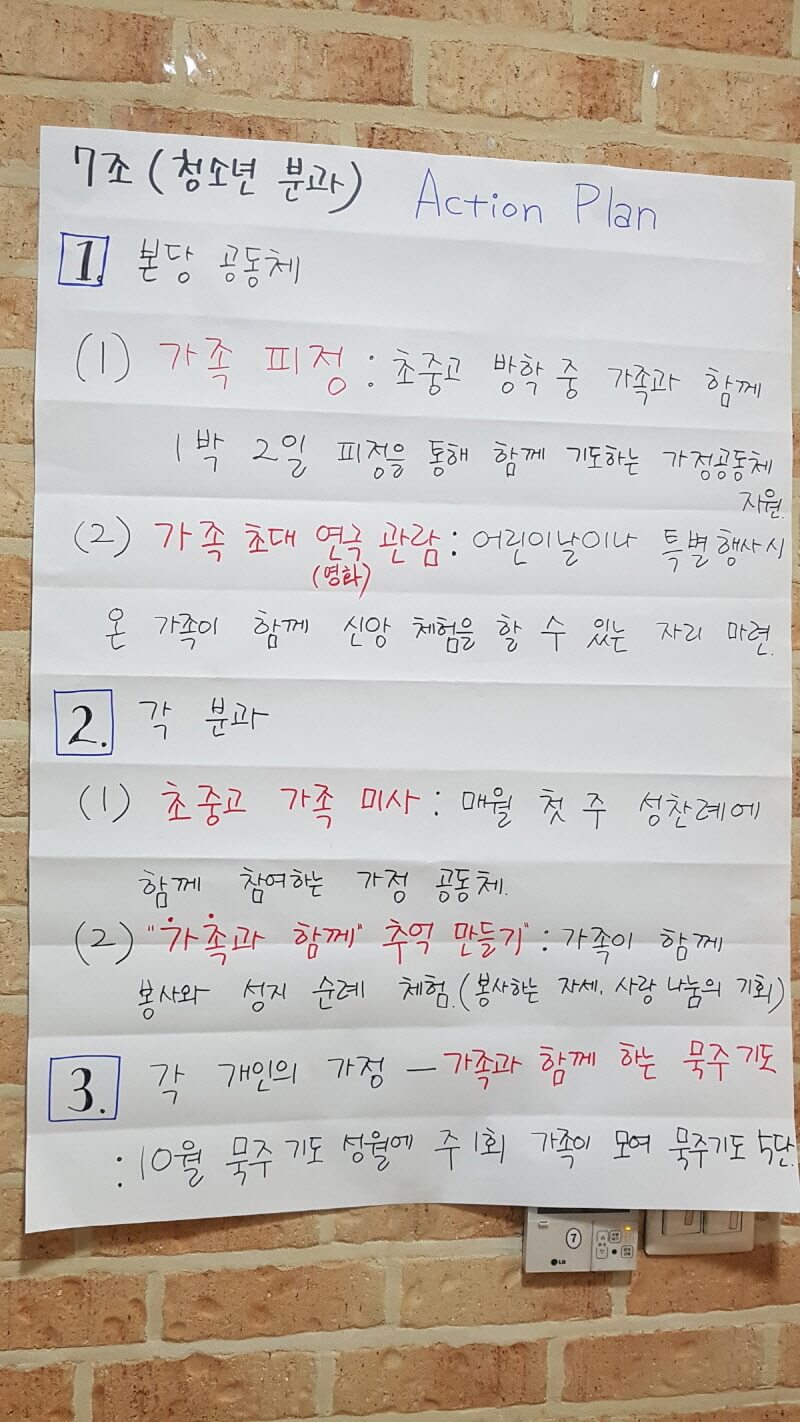 7조 (청소년 분과) Action Plan
1. 본당 공동체
(1) 가족 피정 : 초중고 방학 중 가족과 함께
1박 2일 피정을 통해 함께 기도하는 가정공동체
지원.
(2) 가족 초대 연극 관람 : 어린이날이나 특별행사시
(영화)
온 가족이 함께 신앙 체험을 할 수 있는 자리 마련.
2. 각 분과
(1) 초중고 가족 미사 : 매월 첫 주 성찬례에
함께 참여하는 가정 공동체.
(2) "가족과 함께" 추억 만들기" : 가족이 함께
봉사와 성지 순례 체험. (봉사하는 자세. 사랑 나눔의 기회)
3. 각 개인의 가정 — 가족과 함께 하는 묵주기도
: 10월 묵주 기도 성월에 주 1회 가족이 모여 묵주기도 5단.
7
LG